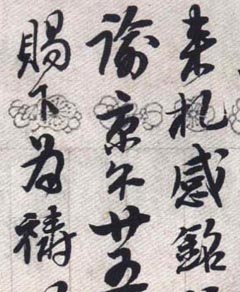 来札感銘
諭京午廿五
賜下為禱